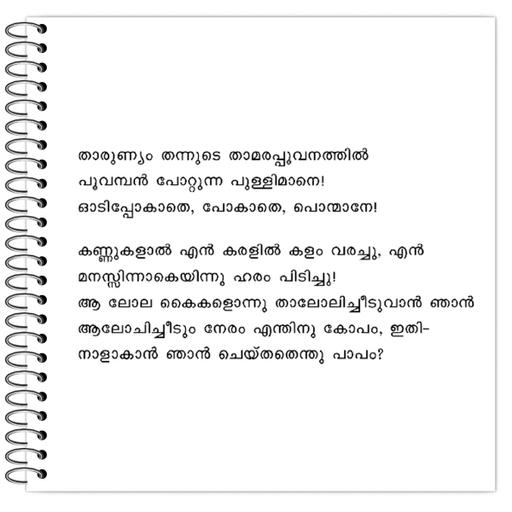 താരുണ്യം തന്നുടെ താമരപ്പൂവനത്തിൽ
പൂവമ്പൻ പോറ്റുന്ന പുള്ളിമാനെ!
ഓടിപ്പോകാതെ, പോകാതെ, പൊന്മാനേ!
കണ്ണുകളാൽ എൻ കരളിൽ കളം വരച്ചു, എൻ
മനസ്സിന്നാകെയിന്നു ഹരം പിടിച്ചു!
ആ ലോല കൈകളൊന്നു താലോലിച്ചീടുവാൻ ഞാൻ
ആലോചിച്ചീടും നേരം എന്തിനു കോപം, ഇതി-
നാളാകാൻ ഞാൻ ചെയ്തതെന്തു പാപം?